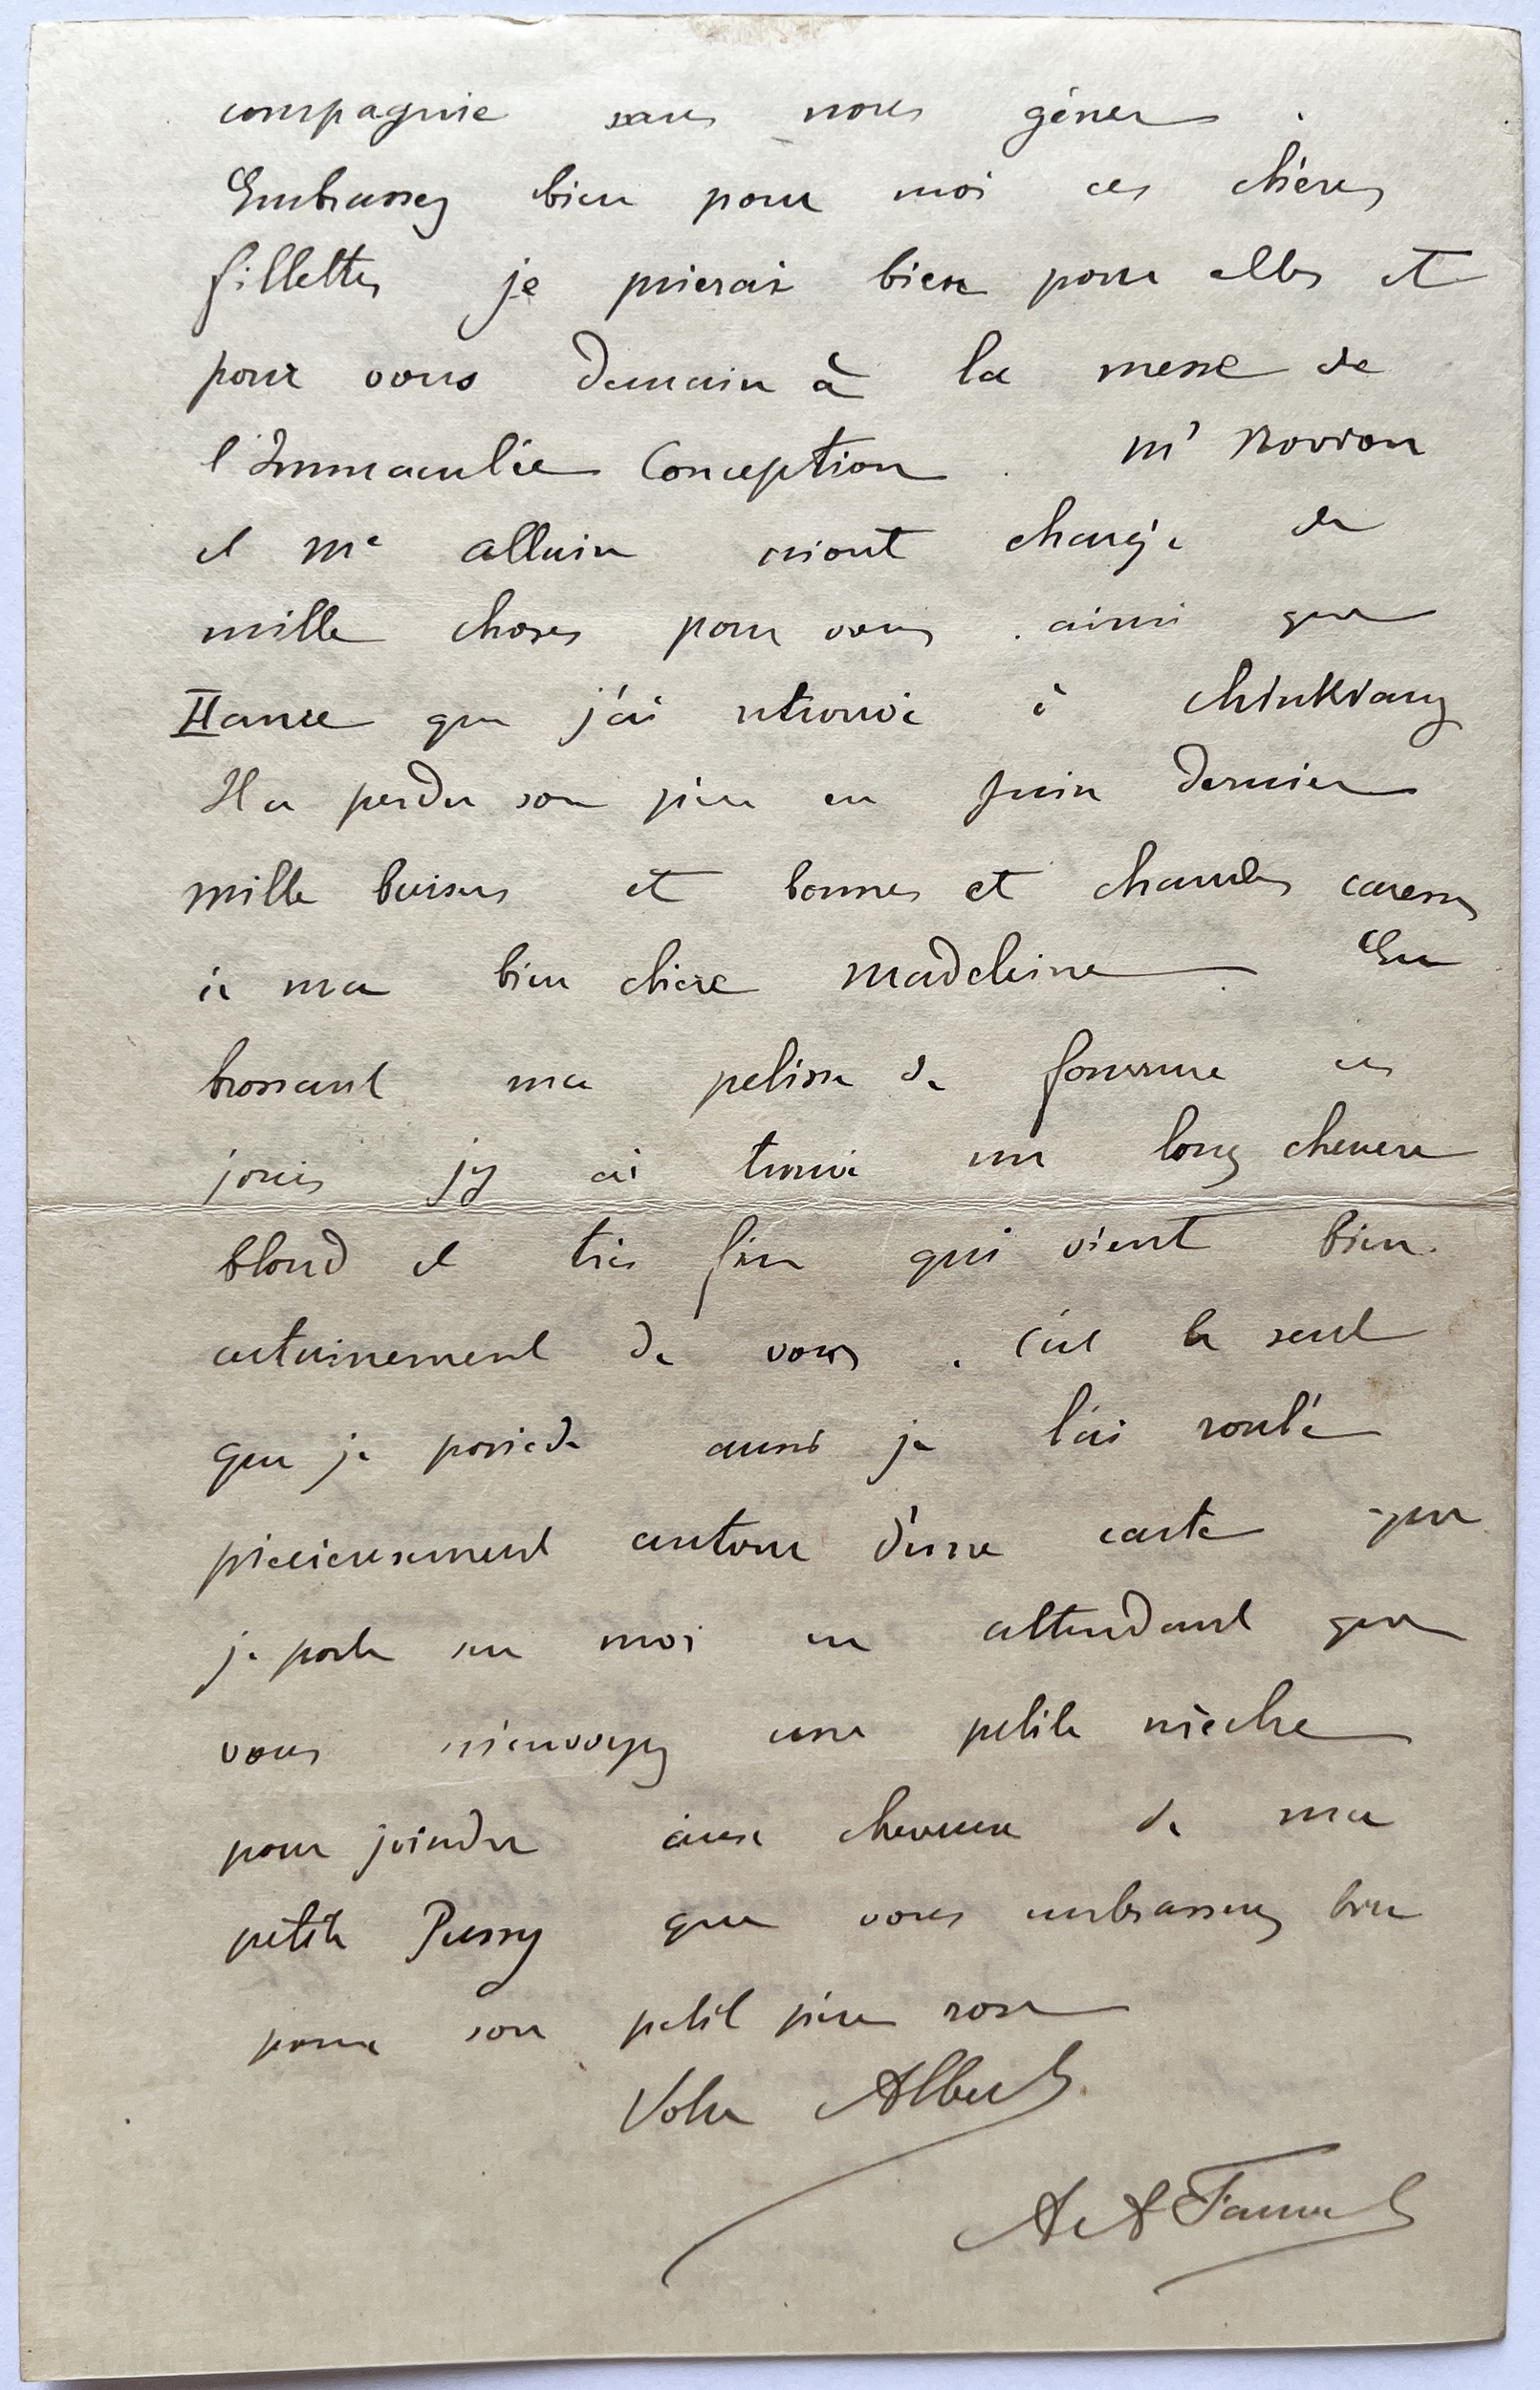 compagnie sans nous gêner.
Embrassez bien pour moi ces chères
fillettes je prierai bien pour elles et
pour vous demain à la messe de
l'Immaculée Conception. Mr Rovron
et Me Alluin m'ont chargé de
mille choses pour vous. ainsi que
Hanse que j'ai retrouvé à Chinkiang
Il a perdu son père en Juin dernier
mille baisers et bonnes et chaudes caresses
à ma bien chère Madeleine. En
brossant ma pelisse de fourrure ces
jours j'y ai trouvé un long cheveu
blond et très fin qui vient bien
certainement de vous. C'est le seul
que je possède aussi je l'ai roulé
précieusement autour d'une carte que
je porte sur moi en attendant que
vous m'envoyez une petite mèche
pour joindre aux cheveux de ma
petite Pussy que vous embrasserez bien
pour son petit père rose
Votre Albert